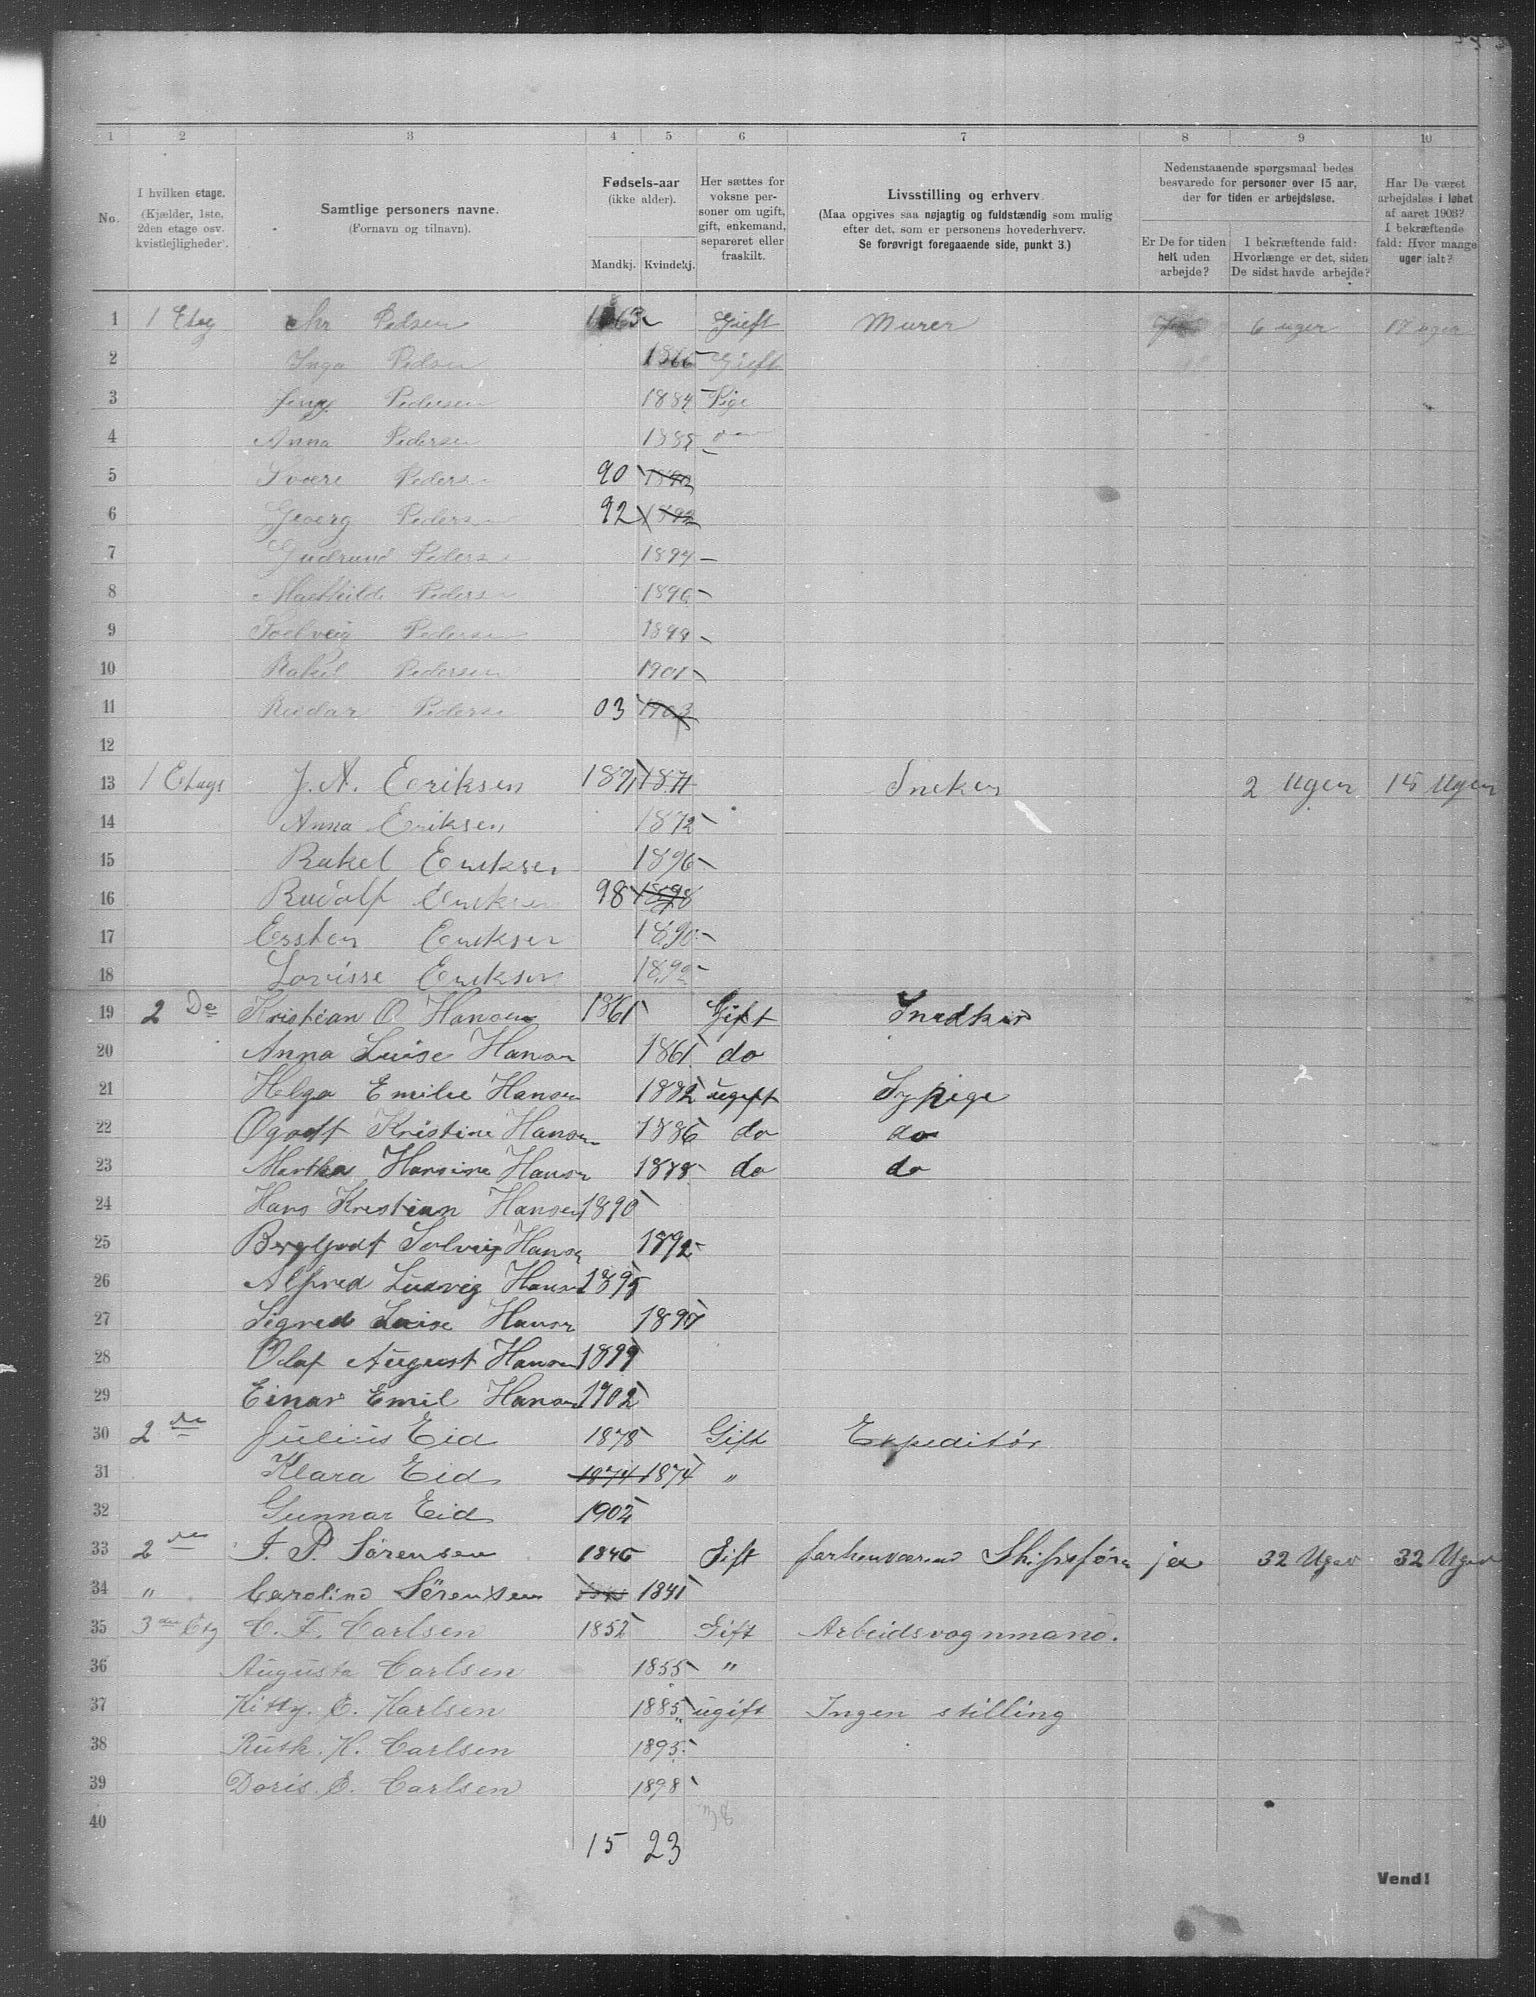 1 2 3 4 5 6 7 8 9 10
No.
I hvilken etage.
(Kjælder, 1ste,
2den etage osv.
kvistlejligheder).
Samtlige personers navne.
(Fornavn og tilnavn).
Fødsels-aar
(ikke alder).
Mandkj. Kvindekj.
Her sættes for
voksne per-
soner om ugift,
gift, enkemand,
separeret eller
fraskilt.
Livsstilling og erhverv
(Maa opgives saa nøjagtig og fuldstændig som mulig
efter det, som er personens hovederhverv.
Se forøvrigt foregaaende side, punkt 3.)
Nedenstaaende spørgsmaal bedes
besvarede for personer over 15 aar,
der for tiden er arbejdsløse.
Er De for tiden
helt uden
arbejde?
I bekræftende fald:
Hvorlænge er det, siden
De sidst havde arbejde?
Har De været
arbejdsløs i løbet
af aaret 1903?
I bekræftende
fald: Hvor mange
uger ialt?
1 1 Etag Chr Pedsen 1863 Gieft Murer 6 uger uger
2 Inga Pedsen 1866 Gieft
3 Jeny Pedersen 1884 Pige
4 Anna Pedersen 1885
5 Sverre Pedersen 90 1890
6 Georg Pedersen 92 1892
7 Gudrund Pedersen 1894
8 Mathilde Pedersen 1896
9 Soelveig Pedersen 1899
10 Rakel Pedersen 1901
11 Reidar Pedersen 03 1903
12
13 1 Etags J. A. Eeriksen 1871 1871 Sneker 2 Uger 15 Uger
14 Anna Eriksen 1872
15 Rakel Eeriksen 1896
16 Rudolf Eeriksen 98 1898
17 Ersten Eeriksen 1890
18 Lovisse Eeriksen 1892
19 2 De Kristian O Hansen 1861 Gift Snedker
20 Anna Luise Hansen 1861 do
21 Helga Emilie Hansen 1882 ugift Sypige
22 Ogodt Kristine Hansen 1886 do do
23 Martha Hansine Hansen 1888 do do
24 Hans Kristian Hansen 1890
25 Bergljodt Solveig Hansen 1892
26 Alfred Ludvig Hansen 1895
27 Sigred Luise Hansen 1897
28 Olaf August Hansen 1899
29 Einar Emil Hansen 1902
30 2 den Julius Eid 1878 Gift Expeditör
31 Klara Eid 1874 1874 "
32 Gunnar Eid 1902
33 2 den J. P. Sørensen 1846 Gift forhenværend Skibsfører ja 32 Uger 32 Uger
34 " Carolind Sörensen 1841
35 3 die Etg C. F. Carlsen 1852 Gift Arbeidsvognmand.
36 Augusta Carlsen 1855 "
37 Kitty. E. Karlsen 1885 ugift Ingen stilling
38 Ruth. K. Carlsen 1895
39 Doris. E. Carlsen 1898
40 38
15 23
Vend!